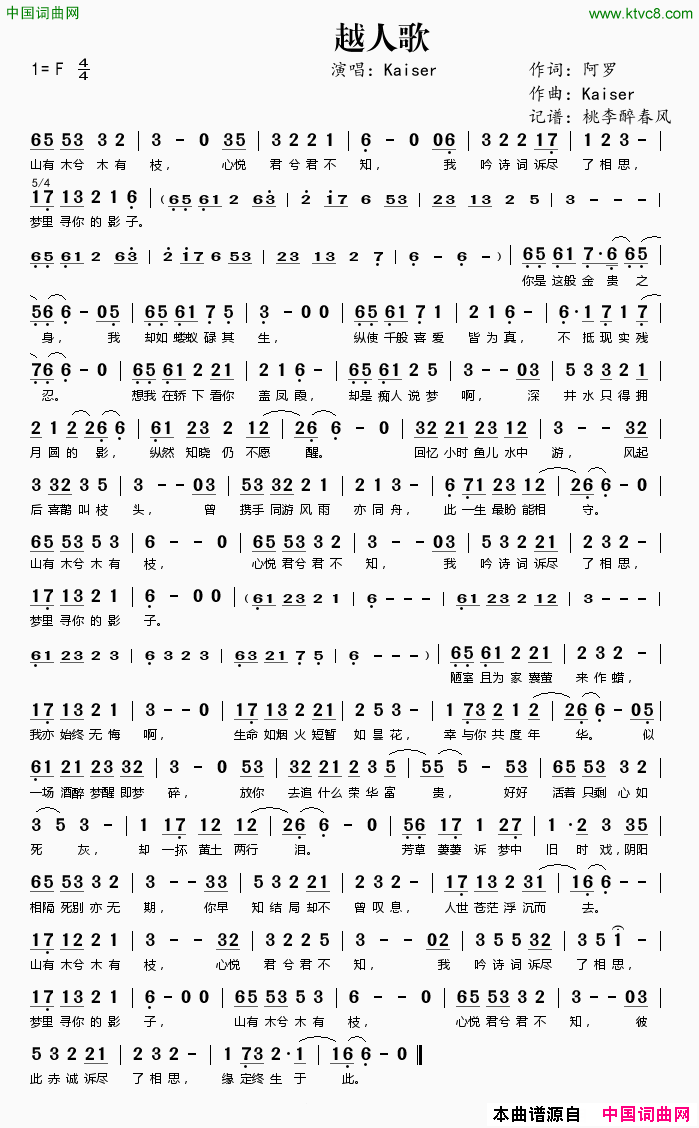 中国词曲网 www.ktvc8.com
越人歌
1= F 4/4 演唱：Kaiser 作词：阿罗
作曲：Kaiser
记谱：桃李醉春风
65 53 3 2 | 3 - 0 35 | 3 2 2 1 | 6 - 0 06 | 3 2 2 17 | 1 2 3 - |
山有木兮 木 有 枝， 心悦 君 兮 君 不 知， 我 吟 诗 词 诉尽 了 相 思，
5/4
17 13 2 1 6 | （65 61 2 63 | 2 17 6 53 | 23 13 2 5 | 3 - - - |
梦里 寻你 的 影 子。
65 61 2 63 | 2 17 6 53 | 23 13 2 7 | 6 - 6 - ） | 65 61 7·6 65 |
你是 这般 金 贵 之
56 6 - 05 | 65 61 7 5 | 3 - 0 0 | 65 61 7 1 | 2 1 6 - | 6·1 7 1 7 |
身， 我 却如 蝼蚁 碌 其 生， 纵使 千般 喜 爱 皆 为 真， 不 抵 现 实 残
76 6 - 0 | 65 61 2 21 | 2 2 3 - | 65 61 2 21 | 3 - - 03 | 5 3 3 21 |
忍。 想我 在轿 下 看你 盖 凤 霞， 却是 痴人 说 梦 啊， 深 井 水 只 得拥
2 1 2 26 6 | 61 23 2 12 | 26 6 - 0 | 32 21 23 12 | 3 - - 32 |
月 圆 的 影， 纵然 知晓 仍 不愿 醒。 回忆 小时 鱼儿 水中 游， 风起
3 32 3 5 | 3 - - 03 | 53 32 2 1 | 2 1 3 - | 6 71 23 12 | 26 6 - 0 |
后 喜鹊 叫 枝 头， 曾 携手 同游 风 雨 亦 同 舟， 此 一生 最盼 能相 守。
65 53 5 3 | 6 - - 0 | 65 53 3 2 | 3 - - 03 | 5 3 2 21 | 2 3 2 - |
山有 木兮 木 有 枝， 心悦 君兮 君 不 知， 我 吟 诗 词 诉尽 了 相 思，
17 13 2 1 | 6 - 0 0 | （61 23 2 1 | 6 - - - | 61 23 2 3 | 6 - - - |
梦里 寻你 的 影 子。
61 23 2 3 | 6 3 2 3 | 63 21 7 5 | 6 - - - ） | 65 61 2 21 | 2 3 2 - |
陋室 且为 家 囊萤 来 作 蜡，
17 13 2 1 | 3 - - 0 | 17 13 2 21 | 2 3 2 - | 1 73 2 1 2 | 26 6 - 05 |
我亦 始终 无 悔 啊， 生命 如烟 火 短暂 如 星 花， 幸 与你 共 度 年 华。 似
61 12 23 32 | 3 - 0 53 | 53 21 2 3 5 | 55 5 - 53 | 65 53 3 2 |
一场 酒醉 梦醒 即梦 碎， 放你 去追 什么 荣 华 富 贵， 好好 活着 只剩 心 如
3 5 3 - | 1 17 12 12 | 26 6 - 0 | 56 17 1 27 | 1·2 3 35 |
死 灰， 却 一抔 黄土 两行 泪。 芳草 萋萋 诉 梦中 旧 时 戏，阴阳
65 53 3 2 | 3 - - 33 | 5 3 2 21 | 2 3 2 - | 17 13 2 31 | 16 6 - - |
相隔 死别 亦 无 期， 你早 知 结 局 却不 曾 叹 息， 人世 苍茫 浮 沉而 去。
17 12 2 1 | 3 - - 32 | 3 2 2 5 | 3 - - 02 | 3 5 5 53 | 3 5 1 - |
山有 木兮 木 有 枝， 心悦 君 兮 君 不 知， 我 吟 诗 词 诉尽 了 相 思，
17 13 2 1 | 6 - 0 0 | 65 53 5 3 | 6 - - 0 | 65 53 3 2 | 3 - - 03 |
梦里 寻你 的 影 子， 山有 木兮 木 有 枝， 心悦 君兮 君 不 知， 彼
5 3 2 21 | 2 3 2 - | 1 73 2·1 | 16 6 - 0 ‖
此 赤 诚 诉尽 了 相 思， 缘 定终 生 于 此。
本曲谱源自 中国词曲网